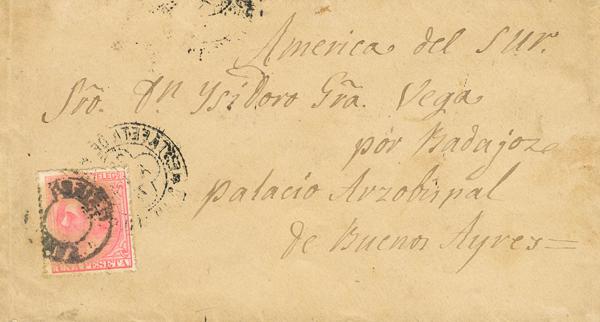 America del Sur.
Sr̃o. Dn Ysidoro Grã. Vega
por Badajoz
palacio Arzobispal
de Buenos Ayres=
UNA PESETA